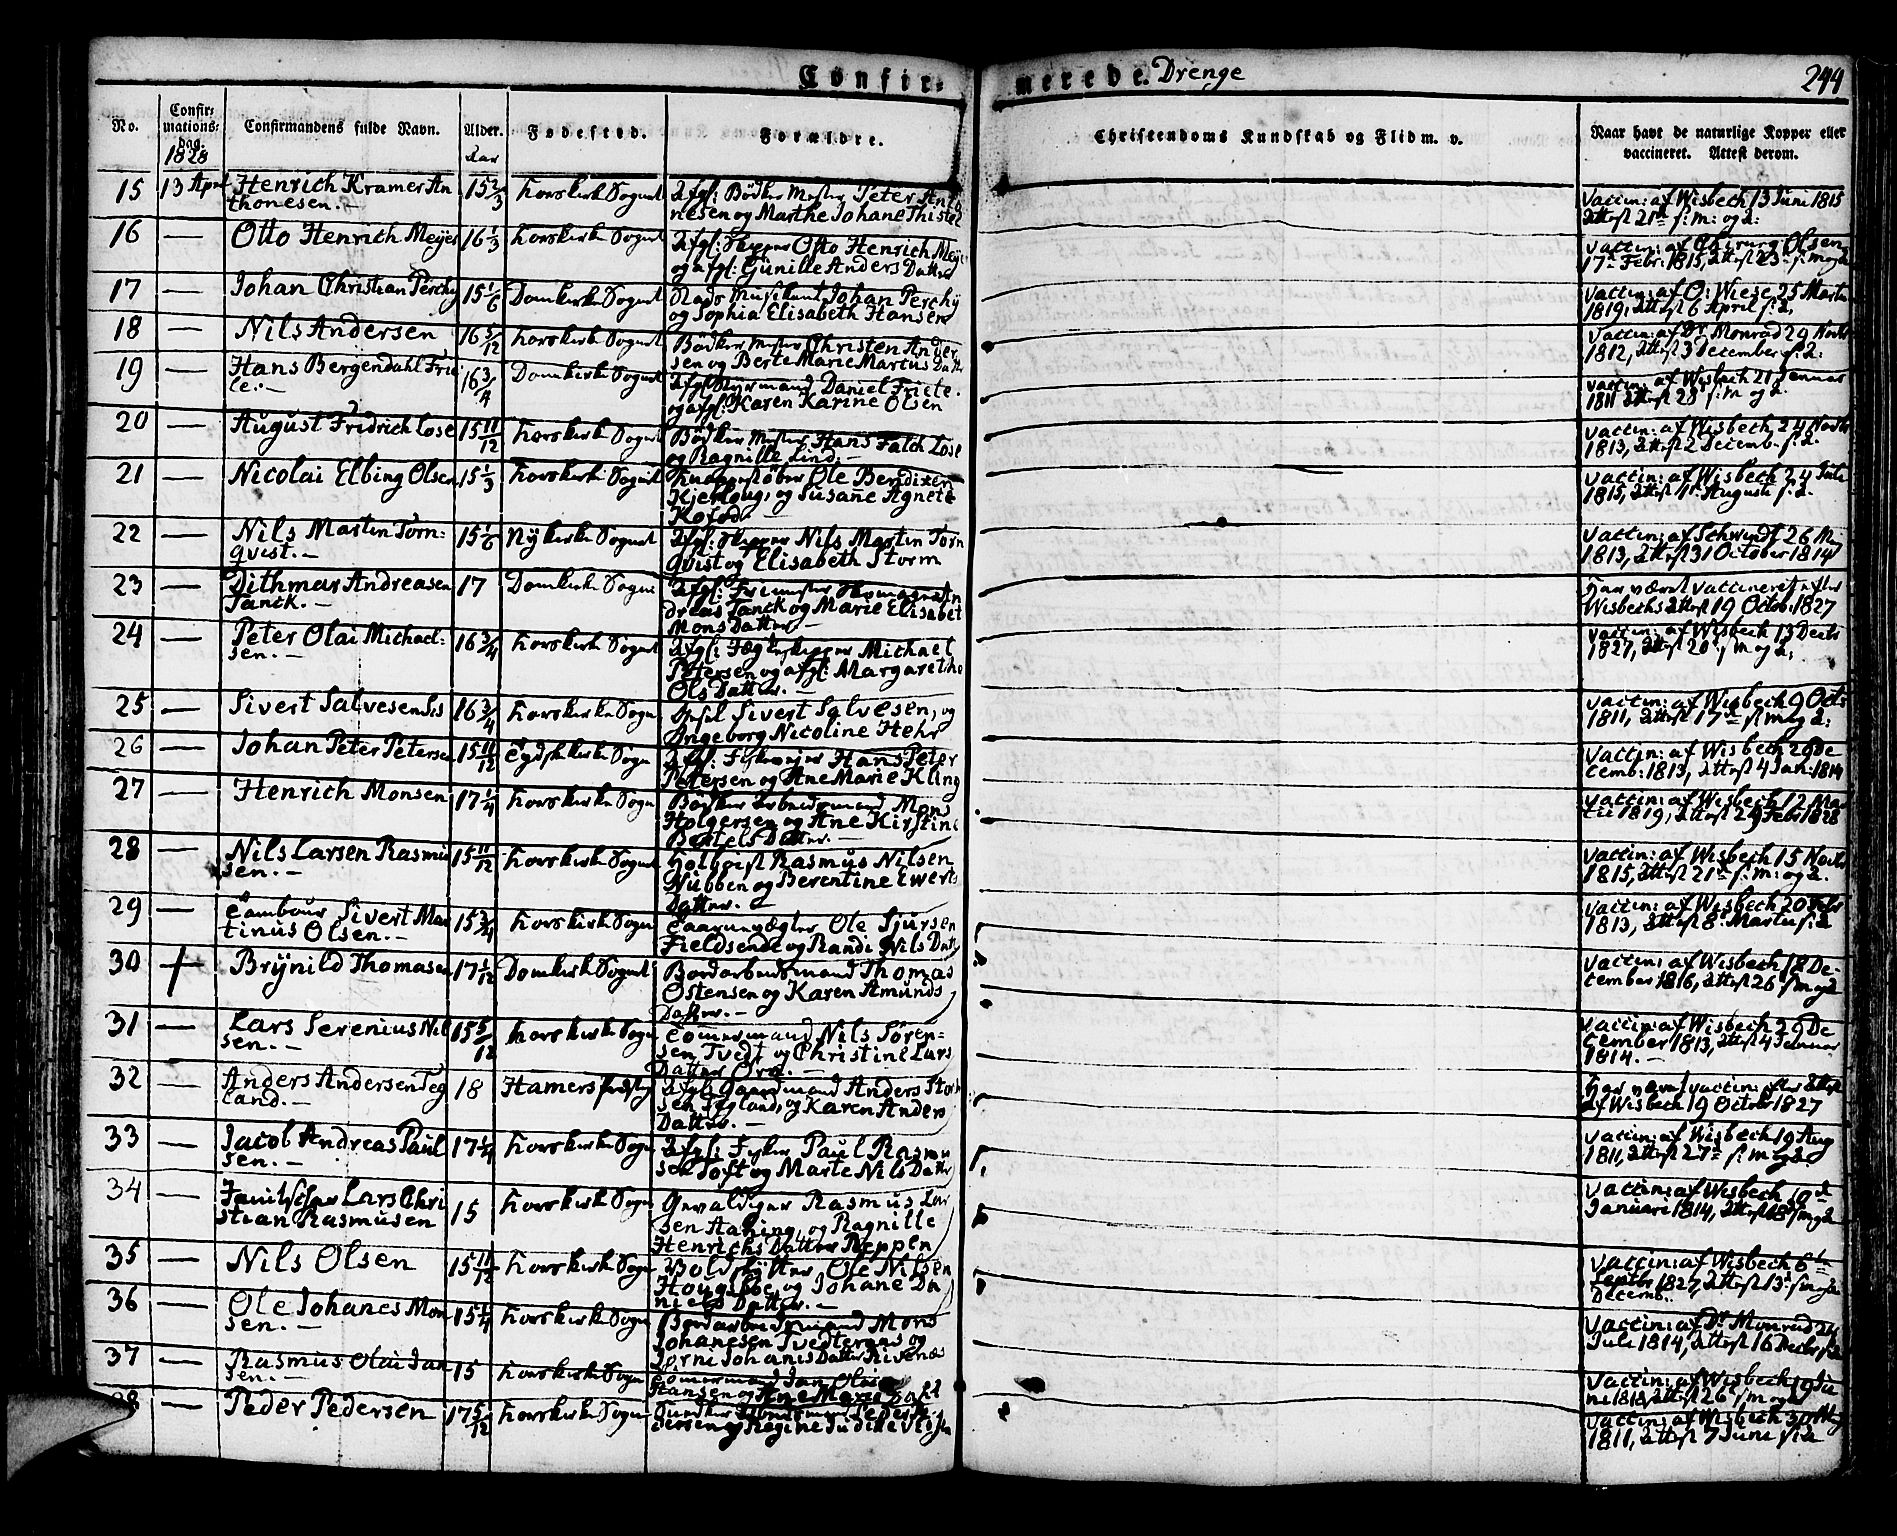 Confir-
merede. Drenge
244
No.
Confir-
mations-
dag.
1828
Confirmandens fulde Navn.
Alder.
Aar
Fødested.
Forældre.
Christendoms Kundskab og Flid m. v.
Naar havt de naturlige Kopper eller
vaccineret. Attest derom.
15 13 April Henrich Kramer An
thonesen.- 15 2/3 Korskirk Sogn Afgl: Bödker Mester Peter Antho
nesen og Marthe Johane Thistel
Vaccin: af Wisbech 13 Juni 1815
Attest 21de s: m: og A:
16 — Otto Henrich Meyer 16 1/3 Korskirk Sogn Afgl: Skipper Otto Henrich Meyer
og afgl: Gunille Anders Datter
Vaccin: af Chirurg Olsen
17de Febr: 1815, Attest 23 s: m og A
17 — Johan Christian Perchy 15 1/6 Domkirke Sogn Stads Musikant Johan Perchy
og Sophia Elisabeth Hansen
Vaccin: af O: Wiese 25 Martii
1819, Attest 6 April s: A.
18 — Nils Andersen 16 5/12 Korskirk Sogn Bödker Mester Christen Ander
sen og Berte Marie Martus Datter
Vaccin: af Dr Monrad 29 Novbr
1812, Attest 3 December s: A:
19 — Hans Bergendahl Frie
le.- 16 3/4 Domkirk Sogn Afgl: Styrmand Daniel Friele.
og afgl: Karen Karine Olsen
Vaccin: af Wisbech 21 Januar
1811 Attest 28 s: m og A.
20 — August Fridrich Lose 15 11/12 Korskirk Sogn Bödker Mester Hans Falch Lose
og Ragnille Lind.-
Vaccin: af Wisbech 24 Novbr
1813, Attest 2 Decemb. s: A.
21 — Nicolai Elbing Olsen 15 1/3 Korskirk Sogn Knappestöber Ole Bendixen
Kjerloug, og Susane Agnete
Kofod.
Vaccin: af Wisbech 24 Juli
1815, Attest 11 Augusti s: A.
22 — Nils Martin Törn-
qvist.- 15 1/6 Nykirke Sogn Afgl: Skipper Nils Martin Törn
qvist og Elisabeth Storm
Vaccin: af Schwindt 26
1813, Attest 31 October 1814
23 — Dithmar Andreasen
Tanck.- 17 Domkirke Sogn
dreas Tanck og Marie Elisabet
Mons Datter
Har været vaccineret efter
Wisbechs Attest 19 Octob: 1827
24 — Peter Olai Michael-
sen.- 16 3/4 Korskirk Sogn Afgl: Jægteskipper Michael
Petersen og afgl: Margarethe
Ols Datter.-
Vaccin: af Wisbech 13 Decbr
1827, Attest 20 s: m og A.
25 — Sivert Salvesen 16 3/4 Korskirke Sogn Sivert Salvesen, og
Ingeborg Nicoline Hehr
Vaccin: af Wisbech 9 Octb
1811, Attest 17de s: m og A:
26 — Johan Peter Petersen 15 11/12 Tydskekirke Sogn Hans Peter
Petersen og Ane Marie Kling
Vaccin: af Wisbech 20 De
cemb: 1813, Attest 4 Jan: 1814
27 — Henrich Monsen 17 1/4 Korskirke Sogn Bödker Arbeidsmand Mons
Holgersen og Ane Kirstine
Bertels Datter.
Vaccin: af Wisbech 12 Mar
tii 1819, Attest 29 Febr 1828
28 — Nils Larsen Rasmu
sen.- 15 11/12 Korskirke Sogn Rasmus Nilsen
Nubben og Berentine Ewerts
Datter.-
Vaccin: af Wisbech 15 Novbr
1815, Attest 21de s: m: og A.
29 — Tambour Sivert Mar
tinus Olsen.- 15 3/4 Korskirk Sogn Taarnvægter Ole Sjursen
Fieldsende og Randi Nils Datter
Vaccin: af Wisbech 20 Febr
1813, Attest 8de Martii s: A
30 + Brynild Thomasen 17 1/12 Domkirk Sogn Bordarbeidsmand Thomas
Östensen og Karen Amunds
Datter.-
Vaccin: af Wisbech 18 De-
cember 1816, Attest 26 s: m og A
31 — Lars Serenius Nil
sen.- 15 5/12 Korskirke Sogn Tömmermand Nils Sören-
sen Tvedt og Christine Lars
Datter Öra.-
Vaccin: af Wisbech 29 De
cember 1813, Attest 4 Januar
1814.-
32 — Anders Andersen Teg
land.- 18 Hamers Afgl: Gaardmand Anders
sen Tegland, og Karen Anders
Datter.-
Har været vaccin: efter Attest
af Wisbech 19 October 1827
33 — Jacob Andreas Paul
sen.- 17 1/4 Korskirke Sogn Afgl: Fisker Paul Rasmu
sen Toft og Marte Nils Datter
Vaccin: af Wisbech 19 Aug
1811, Attest 27de s: m og A.
34 — Janitschar Lars Chri
stian Rasmusen 15 Korskirke Sogn Gevaldiger Rasmus Lar
sen Haning, og Ragnille
Henrichs Datter Reppen
Vaccin: af Wisbech 10de
Januari 1814, Attest 18 s: m og A
35 — Nils Olsen 15 11/12 Korskirke Sogn Ole Nilsen
og Johane Da
niels Datter.-
Vaccin: af Wisbech 6te
Septbr 1827, Attest 13 s: m og A
Decemb.
36 — Ole Johanes Mon
sen.- 15 1/4 Korskirk Sogn Bordarbeidsmand Mons
Johanesen Tvedteraas og
Jorni Johanis Datter Risenæs
Vaccin: af Dr Monrad 24
Juli 1814, Attest 16 Decbr s: A
37 — Rasmus Olai Jan
sen.- 15 Korskirke Sogn Tömmermand Jan Olai
Hansen og Ane Marie Dahl
Vaccin: af Wisbech 19 Ju
ni 1813, Attest 26 s: m og A
38 — Peder Pedersen 17 5/12 Korskirke Sogn Peder
dersen og Regine Judithe
Vaccin: af Wisbech 30 May
1811, Attest 7 Juni s: A